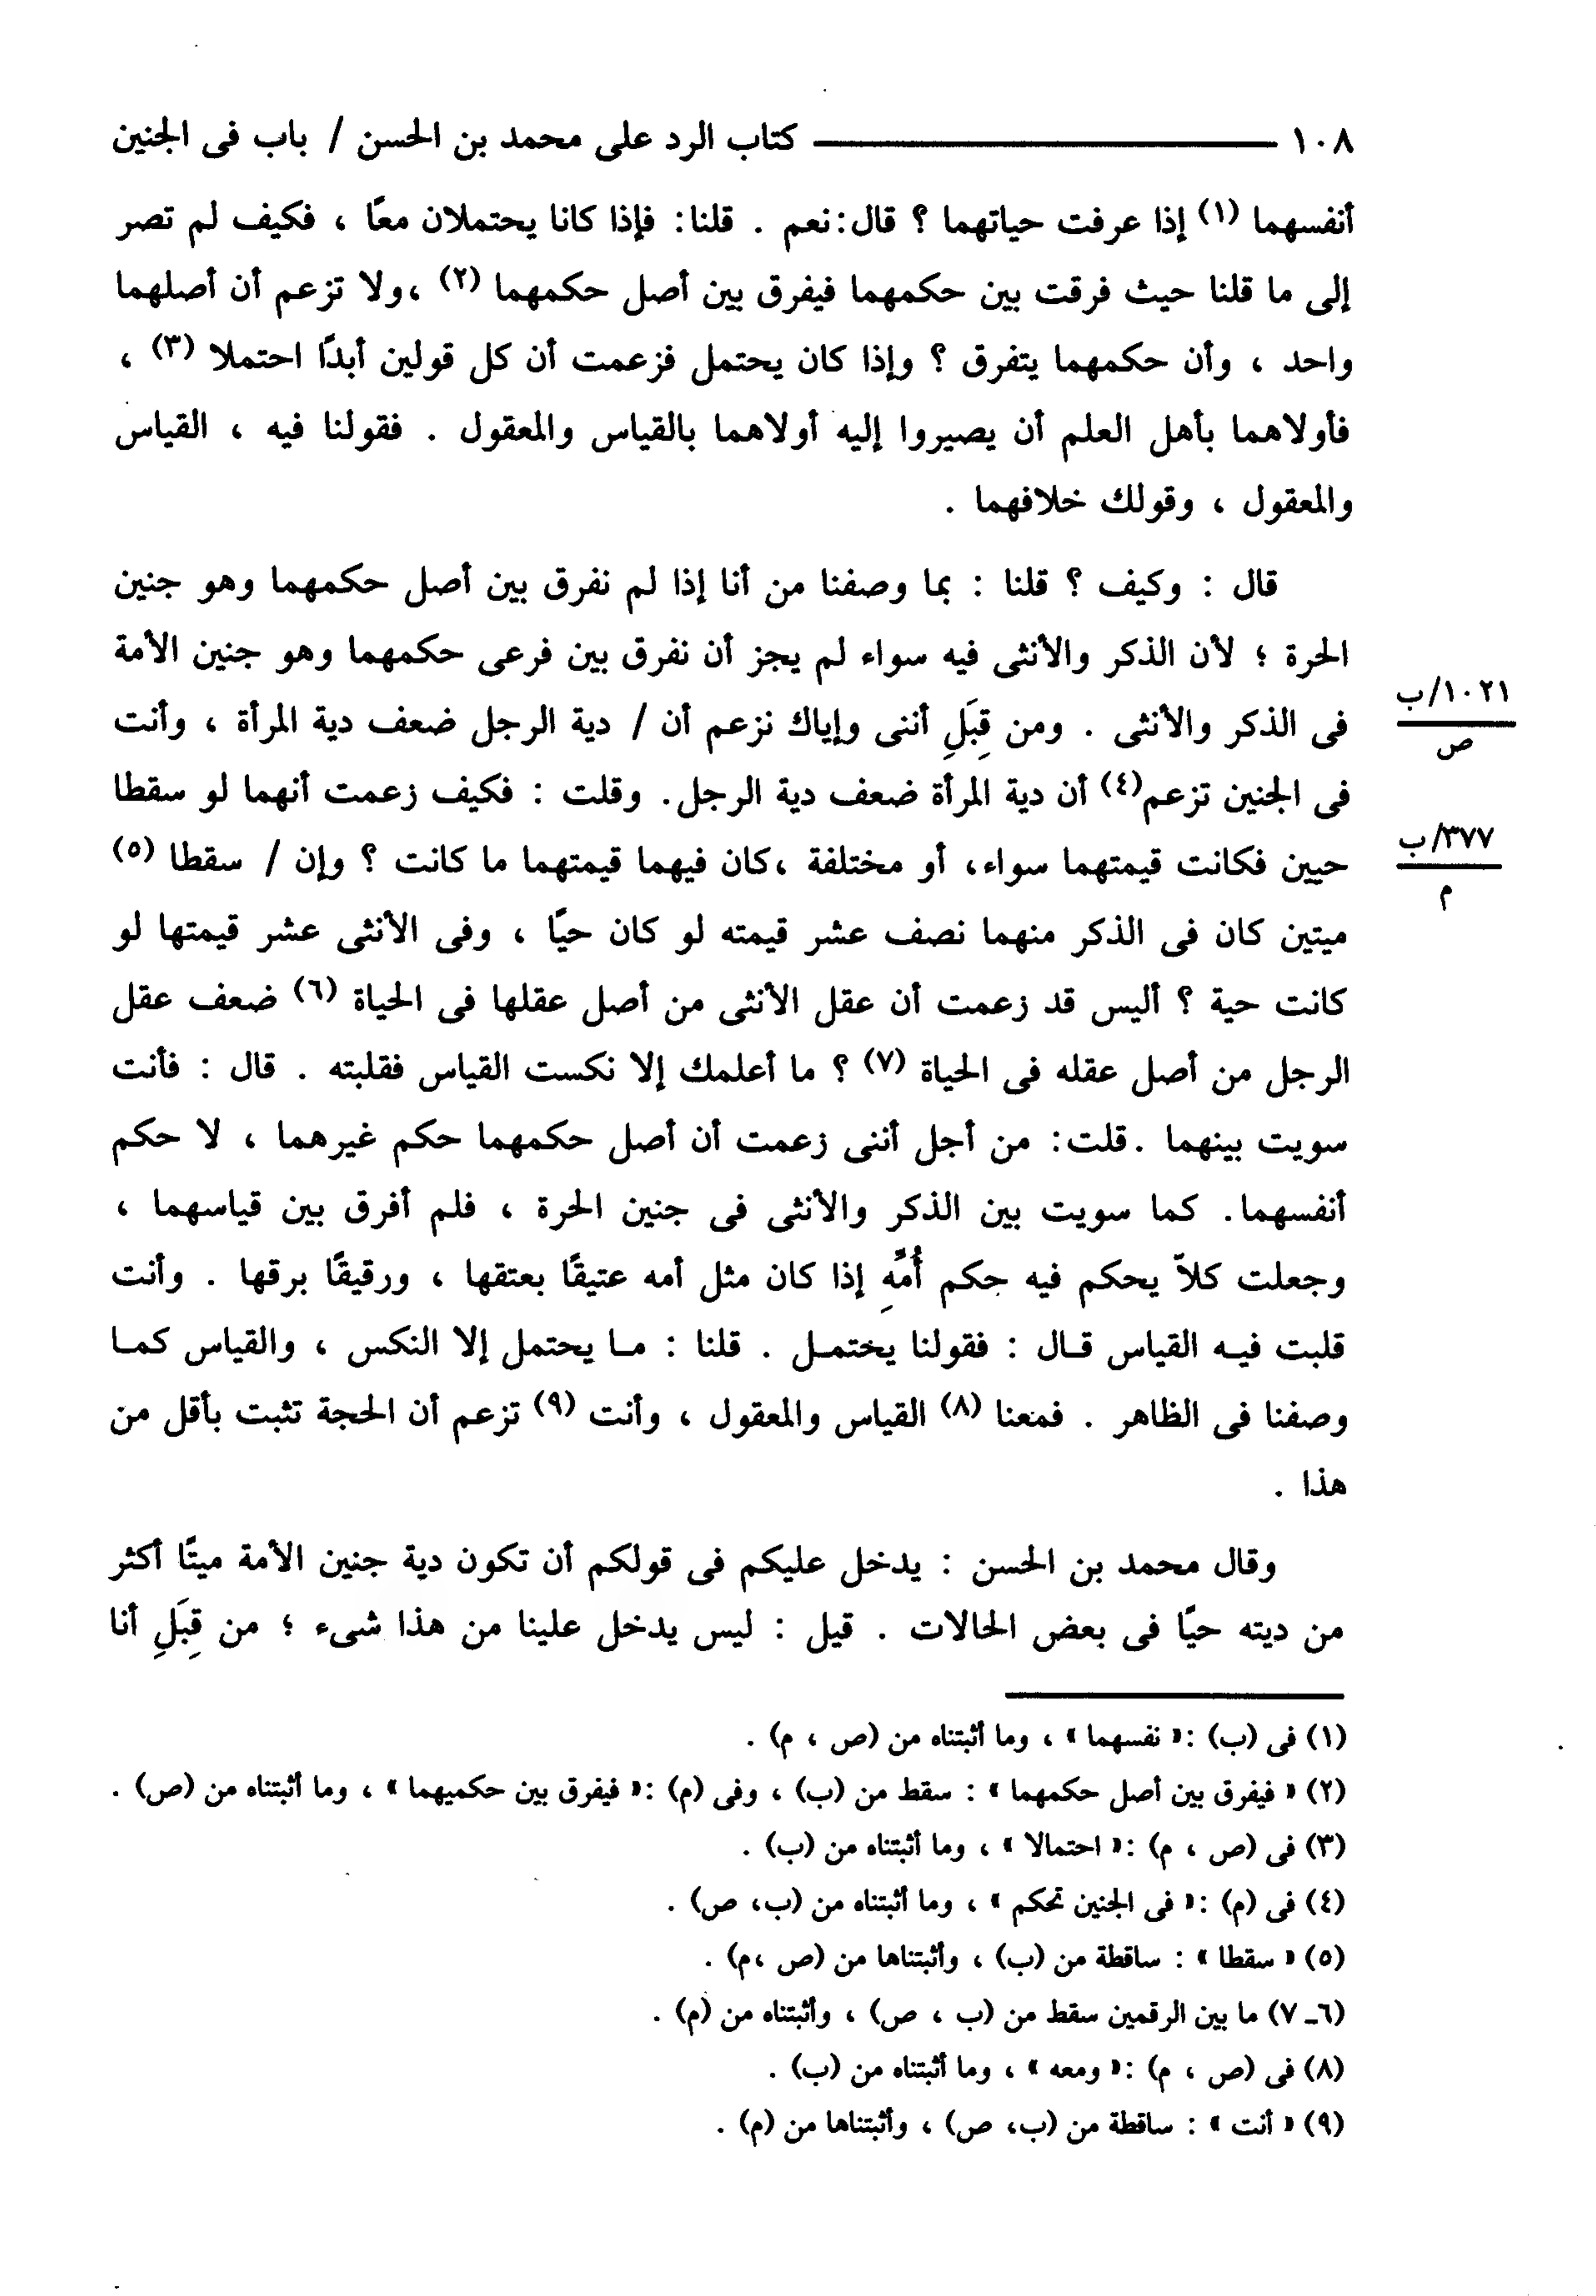 ١٠٨ كتاب الرد على محمد بن الحسن / باب فى الجنين
أنفسهما (١) إذا عرفت حياتهما ؟ قال:نعم . قلنا: فإذا كانا يحتملان معًا ، فكيف لم تصر
إلى ما قلنا حيث فرقت بين حكمهما فيفرق بين أصل حكمهما (٢) ،ولا تزعم أن أصلهما
واحد ، وأن حكمهما يتفرق ؟ وإذا كان يحتمل فزعمت أن كل قولين أبدًا احتملا (٣) ،
فأولاهما بأهل العلم أن يصيروا إليه أولاهما بالقياس والمعقول . فقولنا فيه ، القياس
والمعقول ، وقولك خلافهما .
قال : وكيف ؟ قلنا : بما وصفنا من أنا إذا لم نفرق بين أصل حكمهما وهو جنين
الحرة ؛ لأن الذكر والأنثى فيه سواء لم يجز أن نفرق بين فرعى حكمهما وهو جنين الأمة
فى الذكر والأنثى . ومن قِبَلِ أننى وإياك نزعم أن / دية الرجل ضعف دية المرأة ، وأنت
١٠٢١/ب
ص
فى الجنين تزعم(٤) أن دية المرأة ضعف دية الرجل. وقلت : فكيف زعمت أنهما لو سقطا
حيين فكانت قيمتهما سواء، أو مختلفة ،كان فيهما قيمتهما ما كانت ؟ وإن / سقطا (٥)
٣٧٧/ب
م
ميتين كان فى الذكر منهما نصف عشر قيمته لو كان حيًا ، وفى الأنثى عشر قيمتها لو
كانت حية ؟ أليس قد زعمت أن عقل الأنثى من أصل عقلها فى الحياة (٦) ضعف عقل
الرجل من أصل عقله فى الحياة (٧) ؟ ما أعلمك إلا نكست القياس فقلبته . قال : فأنت
سويت بينهما .قلت: من أجل أننى زعمت أن أصل حكمهما حكم غيرهما ، لا حكم
أنفسهما. كما سويت بين الذكر والأنثى فى جنين الحرة ، فلم أفرق بين قياسهما ،
وجعلت كلاّ يحكم فيه حكم أُمِّهِ إذا كان مثل أمه عتيقًا بعتقها ، ورقيقًا برقها . وأنت
قلبت فيـه القياس قـال : فقولنا يحتمـل . قلنا : مـا يحتمل إلا النكس ، والقياس كمـا
وصفنا فى الظاهر . فمعنا (٨) القياس والمعقول ، وأنت (٩) تزعم أن الحجة تثبت بأقل من
هذا .
وقال محمد بن الحسن : يدخل عليكم فى قولكم أن تكون دية جنين الأمة ميتًا أكثر
من ديته حيًا فى بعض الحالات . قيل : ليس يدخل علينا من هذا شىء ؛ من قِبَلِ أنا
(١) فى (ب) :« نفسهما » ، وما أثبتناه من (ص ، م) .
(٢) « فيفرق بين أصل حكمهما » : سقط من (ب) ، وفى (م) :« فيفرق بين حكميهما » ، وما أثبتناه من (ص) .
(٣) فى (ص ، م) :« احتمالا » ، وما أثبتناه من (ب) .
(٤) فى (م) :« فى الجنين تحكم » ، وما أثبتناه من (ب، ص) .
(٥) « سقطا » : ساقطة من (ب) ، وأثبتناها من (ص ،م) .
(٦ـ ٧) ما بين الرقمين سقط من (ب ، ص) ، وأثبتناه من (م) .
(٨) فى (ص ، م) :« ومعه » ، وما أثبتناه من (ب) .
(٩) « أنت » : ساقطة من (ب، ص) ، وأثبتناها من (م) .